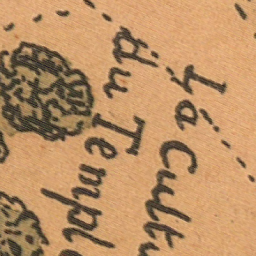 La Cultu
du Temple